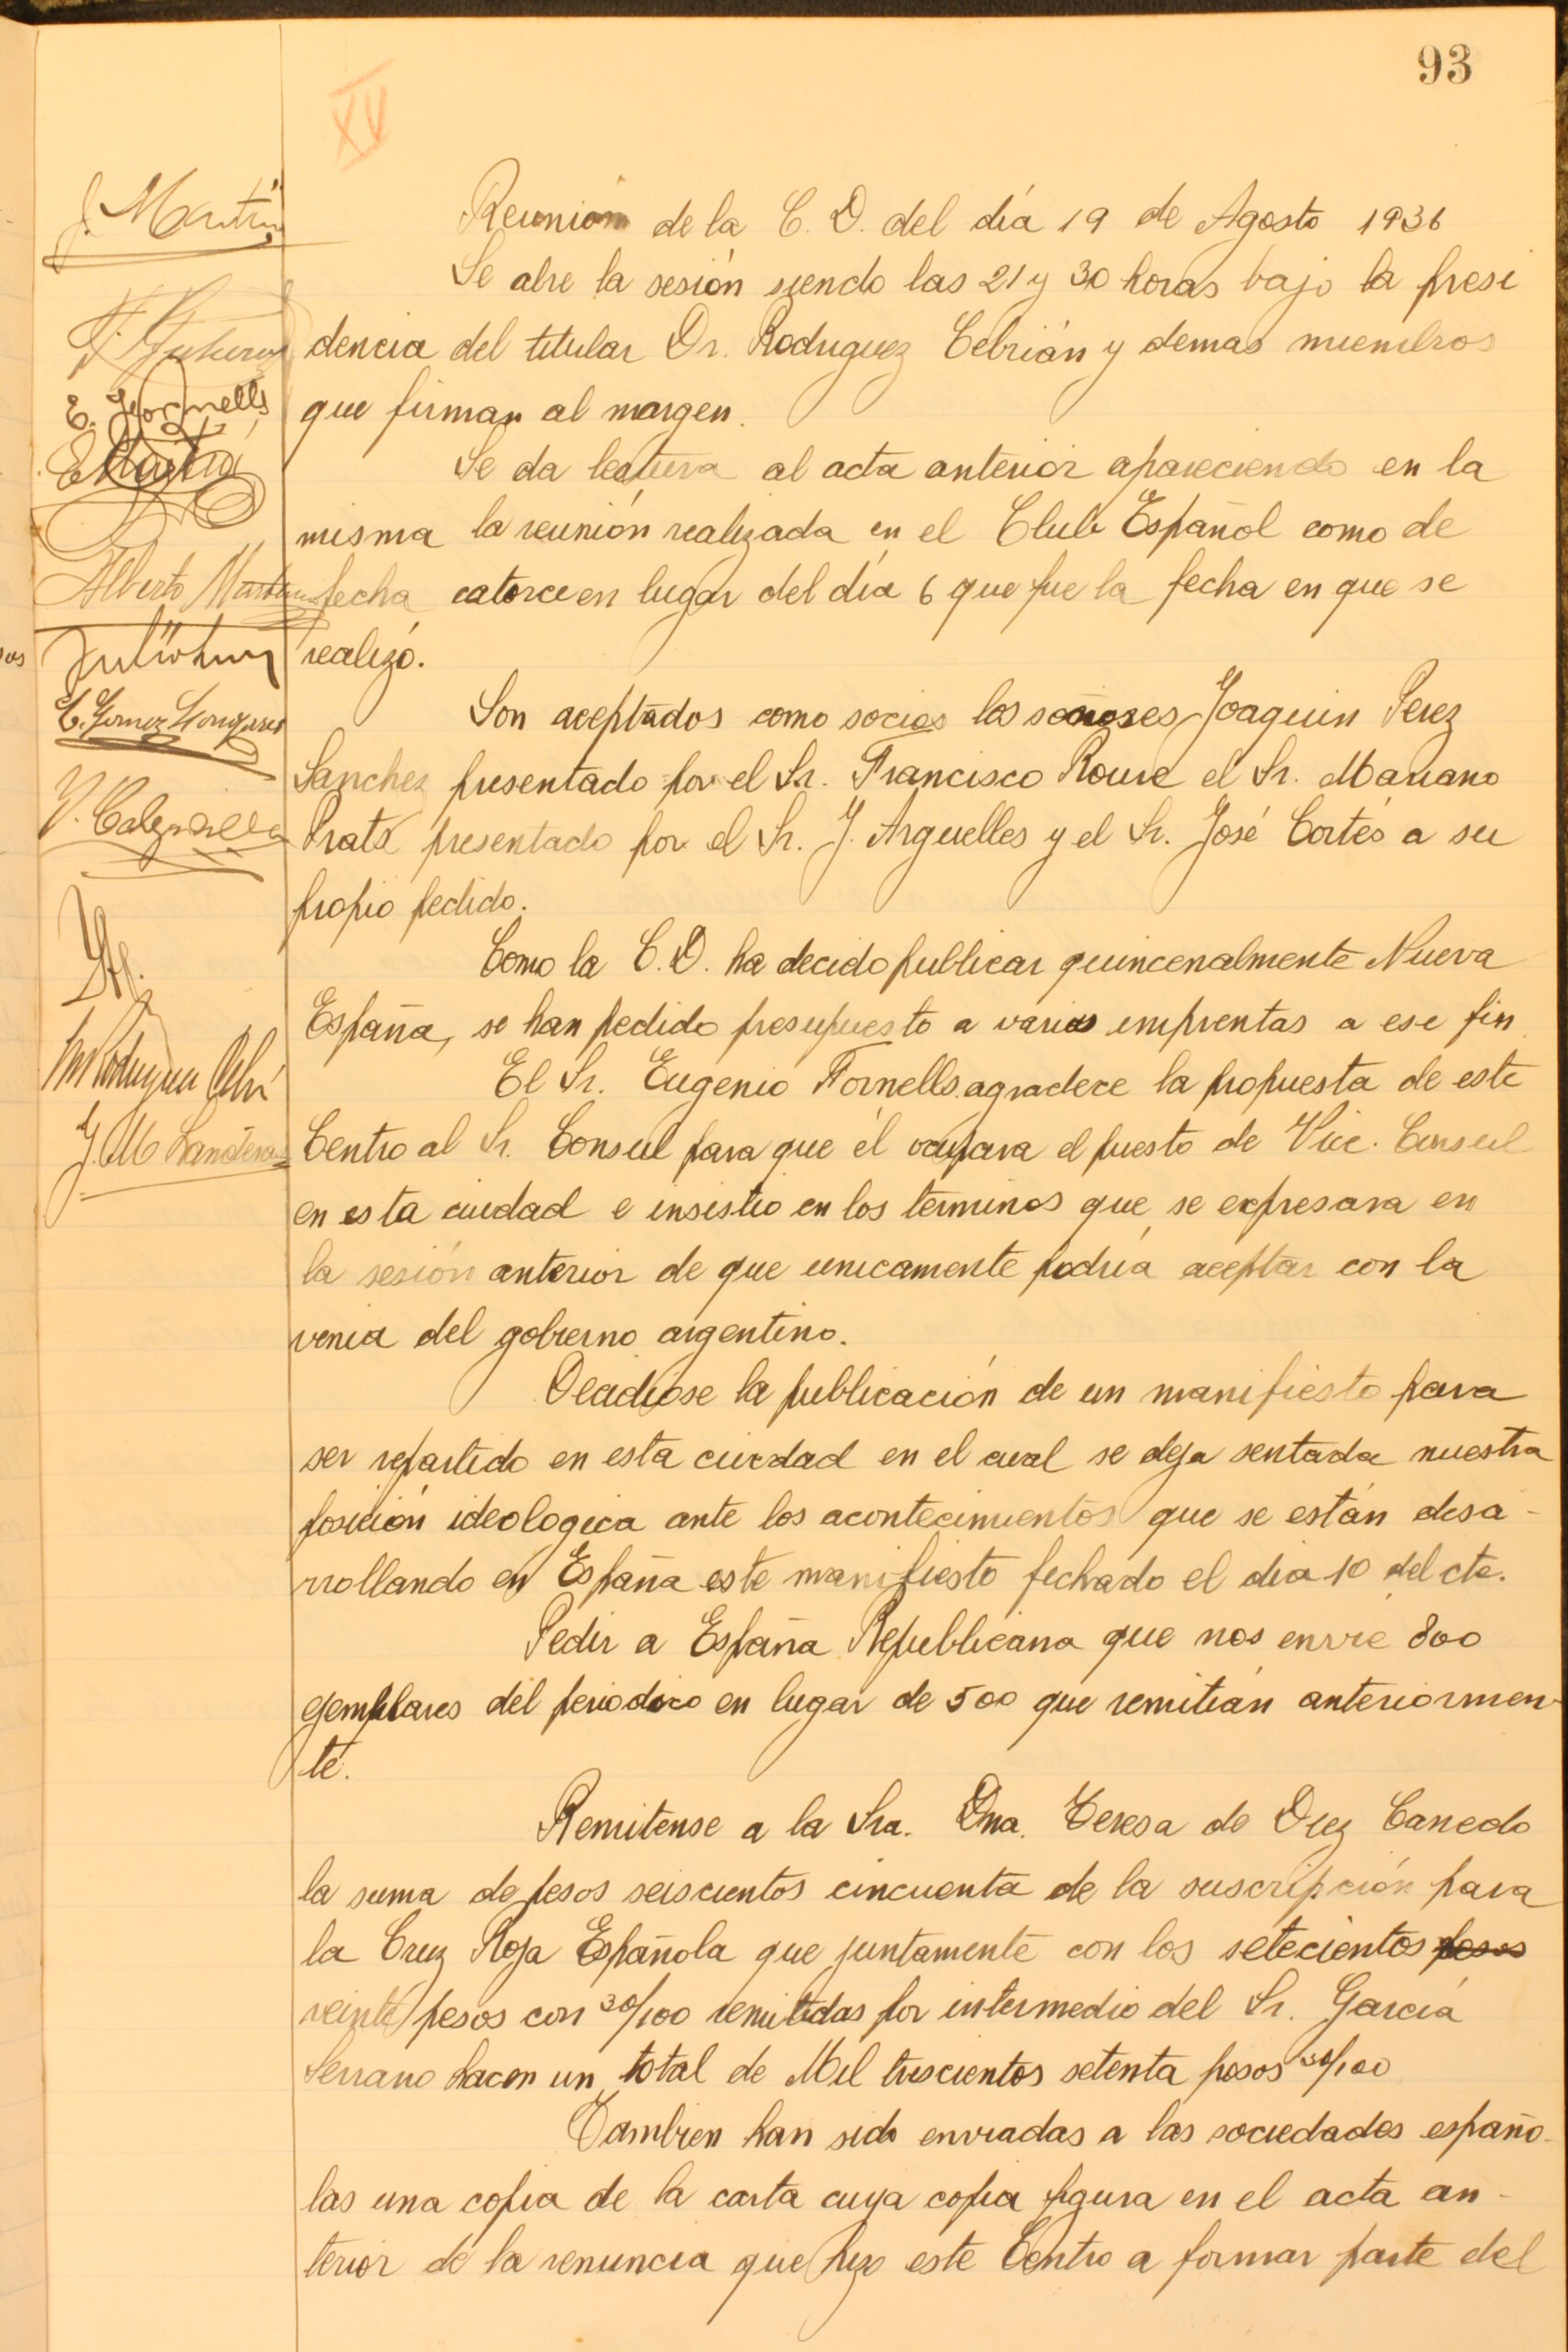 93
XV
Reunion de la C. D. del día 19 de Agosto 1936
Se abre la sesión siendo las 21 y 30 horas bajo la presi
dencia del titular Dr. Rodriguez Cebrián y demas miembros
que firman al margen.
Se da lectura al acta anterior apareciendo en la
misma la reunión realizada en el Club Español como de
fecha catorce en lugar del día 6 que fue la fecha en que se
realizó.
Son aceptados como socios los señores Joaquin Perez
Sanchez presentado por el Sr. Francisco Roure el Sr. Mariano
Prats presentado por el Sr. J. Arguelles y el Sr. José Cortés a su
propio pedido.
Como la C. D. ha decido publicar quincenalmente Nueva
España, se han pedido presupuesto a varias imprentas a ese fin
El Sr. Eugenio Fornells agradece la propuesta de este
Centro al Sr. Consul para que él ocupara el puesto de Vice. Consul
en esta ciudad e insistio en los terminos que se expresara en
la sesión anterior de que unicamente podría aceptar con la
venia del gobierno argentino.
Decidiose la publicación de un manifiesto para
ser repartido en esta ciudad en el cual se deja sentada nuestra
posición ideologica ante los acontecimientos que se están desa-
rrollando en España este manifiesto fechado el dia 10 del cte.
Pedir a España Republicana que nos envie 800
ejemplares del periodico en lugar de 500 que remitían anteriormen-
te.
Remitense a la Sra. Dna. Teresa de Diez Canedo
la suma de pesos seiscientos cincuenta de la suscripción para
la Cruz Roja Española que juntamente con los setecientos pesos
veinte pesos con 30/100 remitidas por intermedio del Sr. García
Serrano hacen un total de Mil trescientos setenta pesos 30/100
Tambien han sido enviadas a las sociedades españo-
las una copia de la carta cuya copia figura en el acta an-
terior de la renuncia que hizo este Centro a formar parte del
J. Martin
E. Fornells
Alberto Martin
E. Gomez
J. M. Landeras